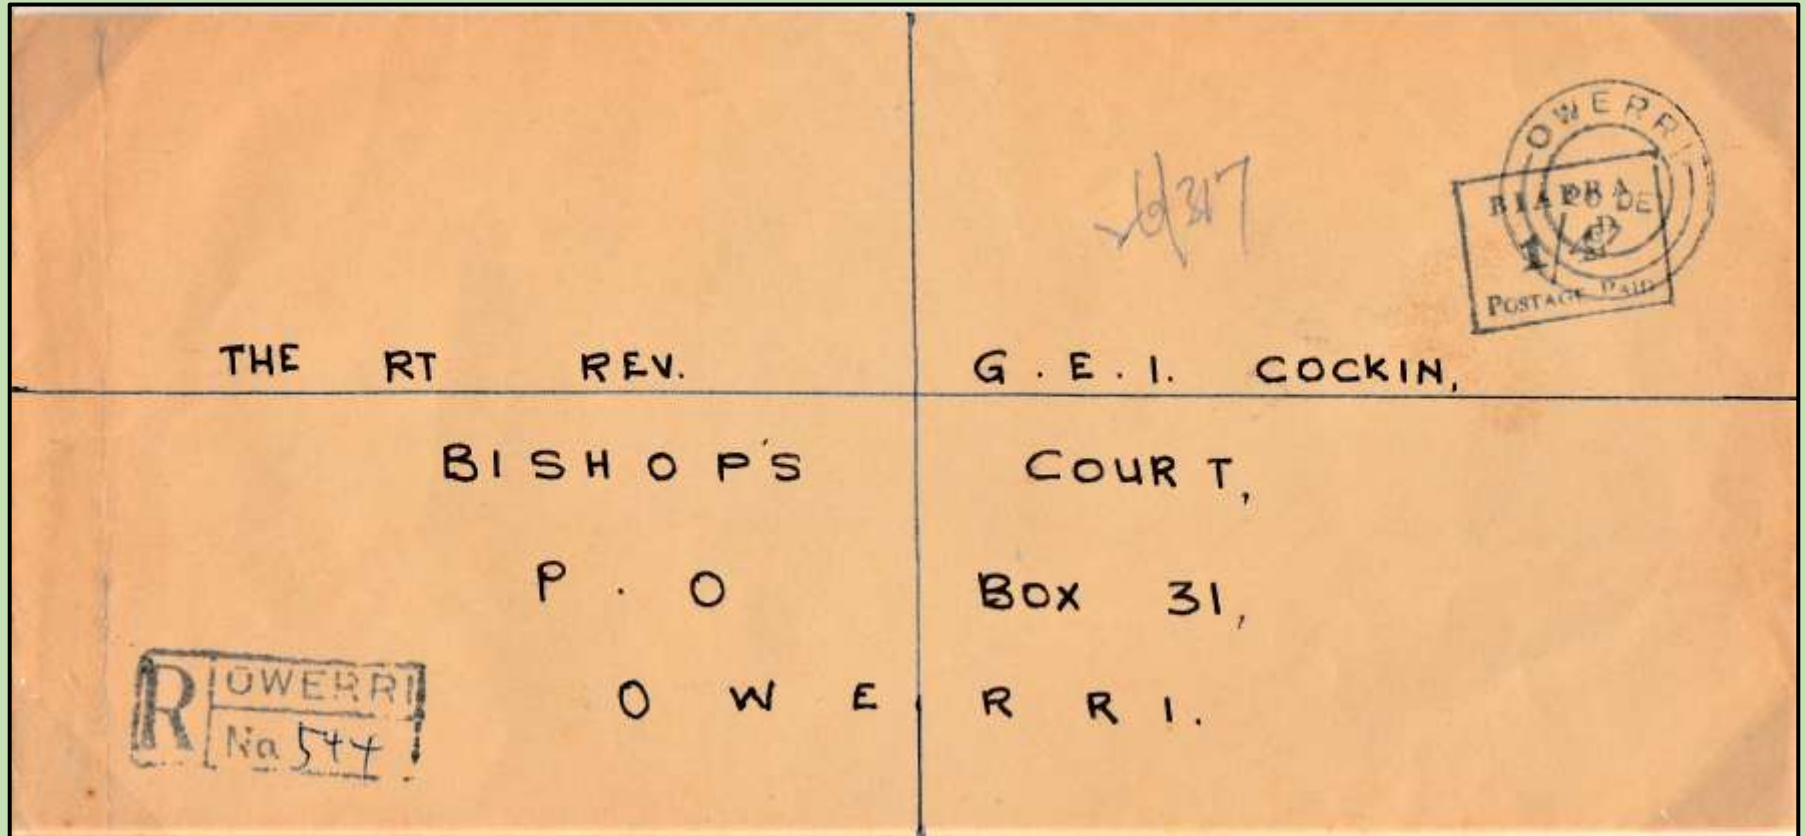 OWERRI
BIAFRA
POSTAGE PAID
THE RT REV. G.E.I. COCKIN,
BISHOP'S COURT,
P.O BOX 31,
OWERRI.
R OWERRI
No 544